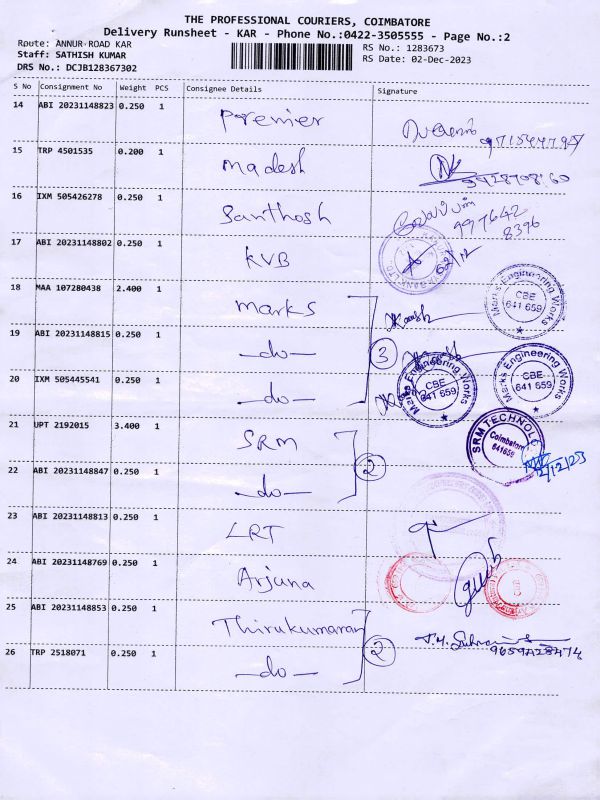 THE PROFESSIONAL COURIERS, COIMBATORE
Delivery Runsheet - KAR - Phone No.:0422-3505555 - Page No.:2
Route: ANNUR ROAD KAR RS No.: 1283673
Staff: SATHISH KUMAR RS Date: 02-Dec-2023
DRS No.: DCJB128367302
S No Consignment No Weight PCS Consignee Details Signature
14 ABI 20231148823 0.250 1 Premier
15 TRP 4501535 0.200 1 Madesh
16 IXM 505426278 0.250 1 Santhosh 997642
8396
17 ABI 20231148802 0.250 1 KVB
18 MAA 107280438 2.400 1 Marks Marks Engineering Works CBE 641 659
19 ABI 20231148815 0.250 1 —do— 3
20 IXM 505445541 0.250 1 —do— Marks Engineering Works CBE 641 659 Marks Engineering Works CBE 641 659
21 UPT 2192015 3.400 1 SRM SRM TECHNOL Coimbatore 641659
2/12/23
22 ABI 20231148847 0.250 1 —do— 2
23 ABI 20231148813 0.250 1 LRT
24 ABI 20231148769 0.250 1 Arjuna
25 ABI 20231148853 0.250 1 Thirukumaran
26 TRP 2518071 0.250 1 —do— 2 9659428474